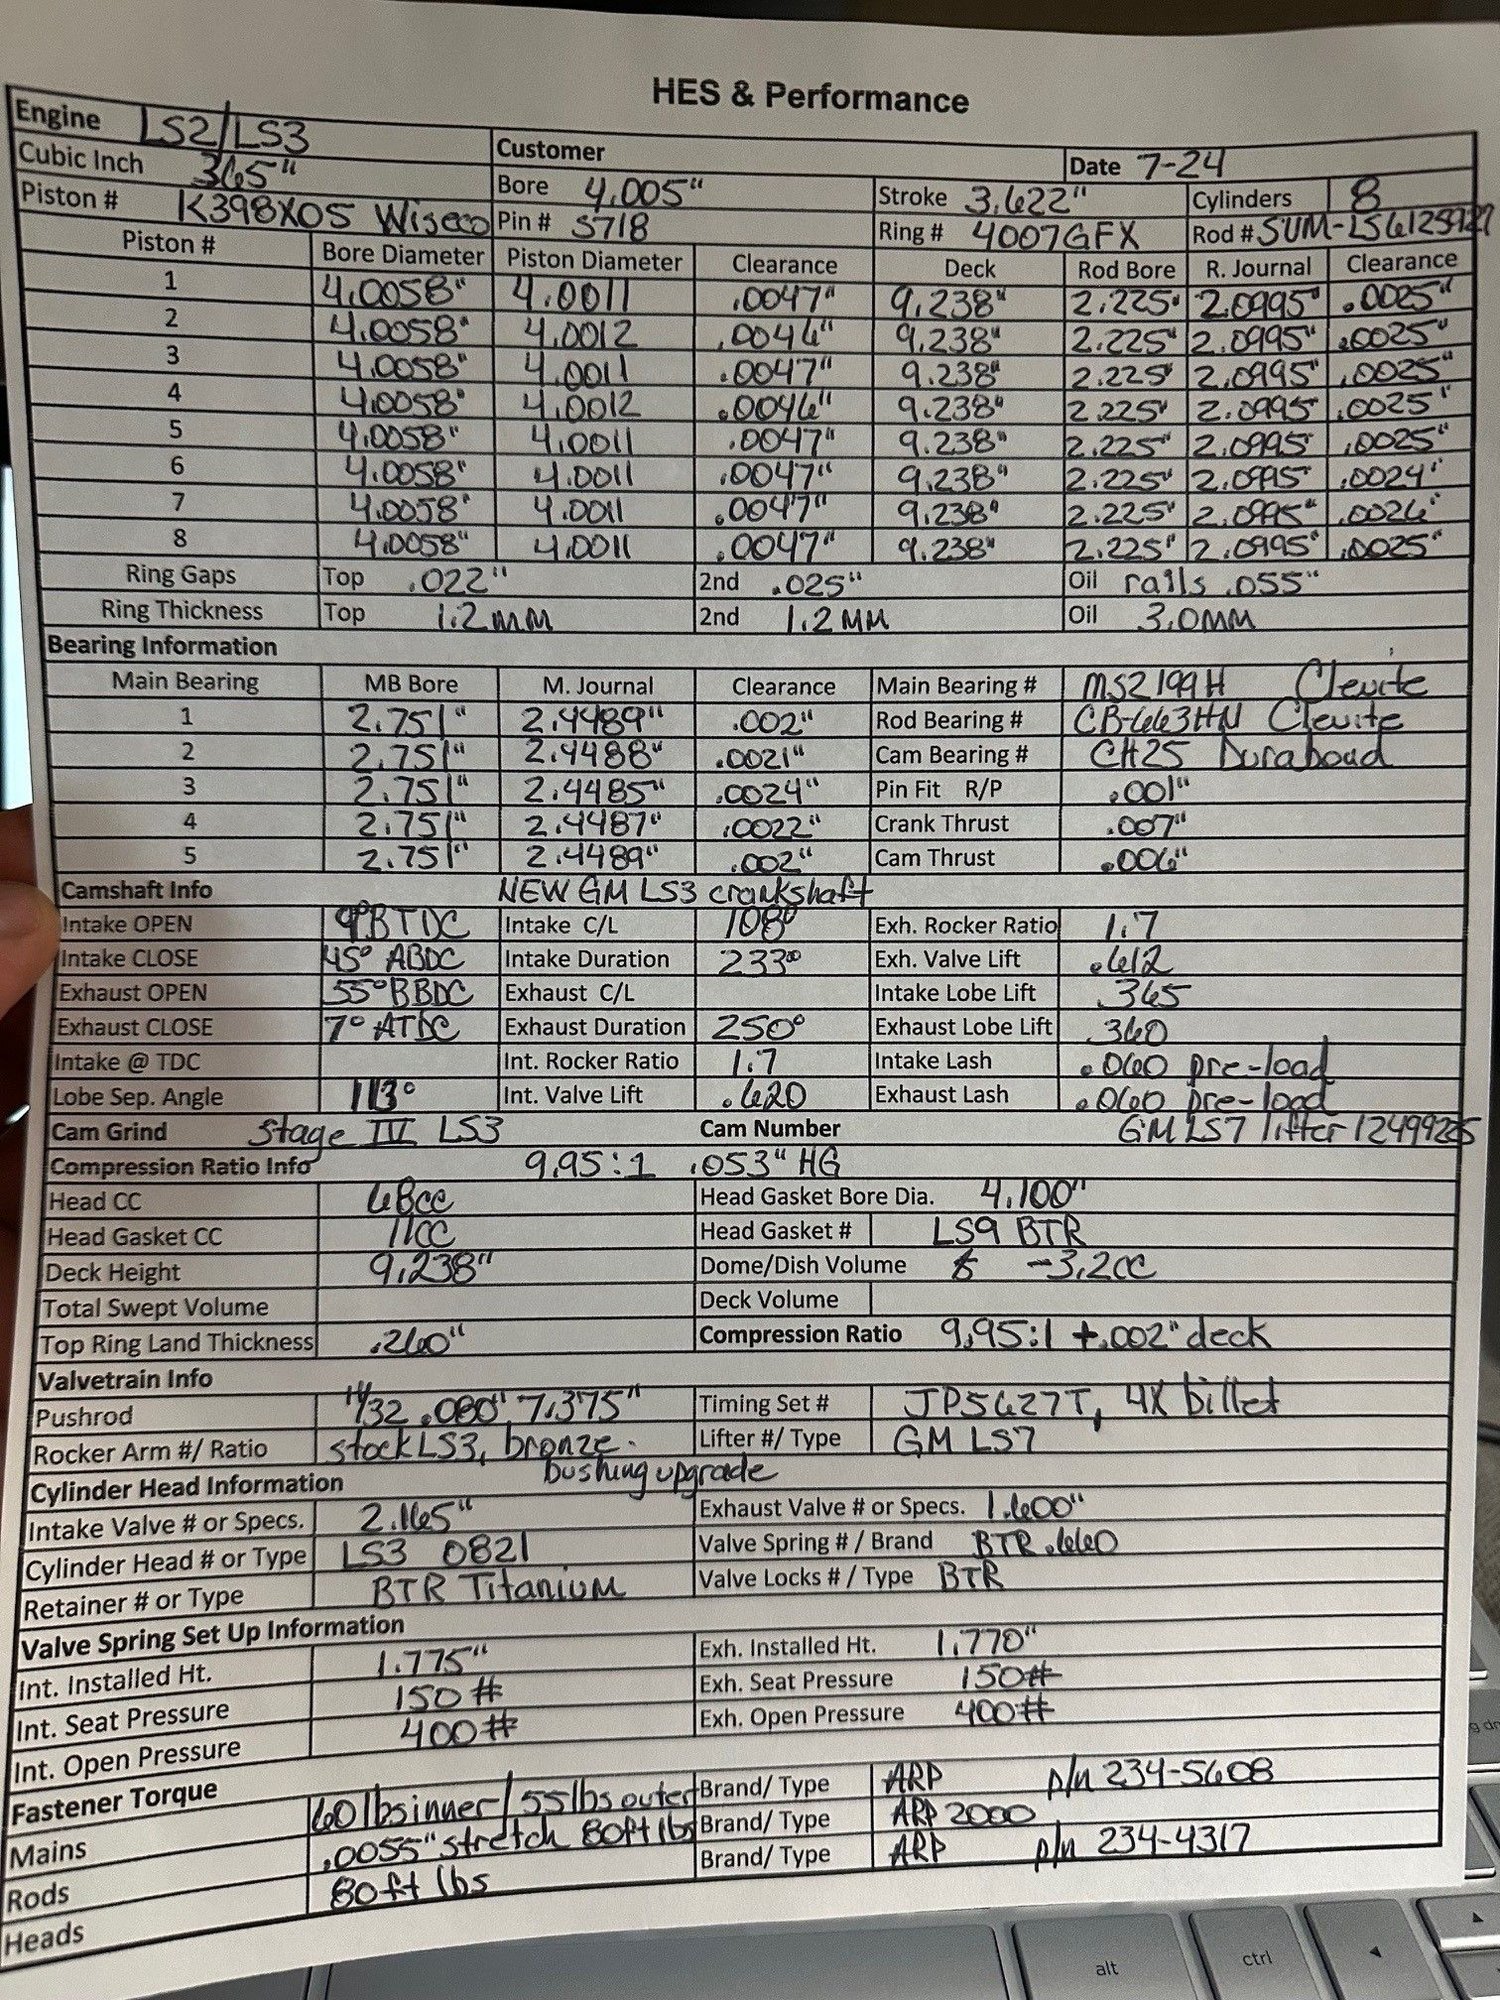 HES & Performance
Engine LS2/LS3 Customer Date 7-24
Cubic Inch 365" Bore 4.005" Stroke 3.622" Cylinders 8
Piston # K398X05 Wiseco Pin # S718 Ring # 4007GFX Rod # SUM-LS6125927
Piston # Bore Diameter Piston Diameter Clearance Deck Rod Bore R. Journal Clearance
1 4.0058" 4.0011 .0047" 9.238" 2.225" 2.0995" .0025"
2 4.0058" 4.0012 .0046" 9.238" 2.225" 2.0995" .0025"
3 4.0058" 4.0011 .0047" 9.238" 2.225" 2.0995" .0025"
4 4.0058" 4.0012 .0046" 9.238" 2.225" 2.0995" .0025"
5 4.0058" 4.0011 .0047" 9.238" 2.225" 2.0995" .0025"
6 4.0058" 4.0011 .0047" 9.238" 2.225" 2.0995" .0024"
7 4.0058" 4.0011 .0047" 9.238" 2.225" 2.0995" .0026"
8 4.0058" 4.0011 .0047" 9.238" 2.225" 2.0995" .0025"
Ring Gaps Top .022" 2nd .025" Oil rails .055"
Ring Thickness Top 1.2MM 2nd 1.2MM Oil 3.0MM
Bearing Information
Main Bearing MB Bore M. Journal Clearance Main Bearing # MS2199H Clevite
1 2.751" 2.4489" .002" Rod Bearing # CB-663HN Clevite
2 2.751" 2.4488" .0021" Cam Bearing # CH25 Durabond
3 2.751" 2.4485" .0024" Pin Fit R/P .001"
4 2.751" 2.4487" .0022" Crank Thrust .007"
5 2.751" 2.4489" .002" Cam Thrust .006"
Camshaft Info NEW GM LS3 crankshaft
Intake OPEN 9° BTDC Intake C/L 108° Exh. Rocker Ratio 1.7
Intake CLOSE 45° ABDC Intake Duration 233° Exh. Valve Lift .612
Exhaust OPEN 55° BBDC Exhaust C/L Intake Lobe Lift .365
Exhaust CLOSE 7° ATDC Exhaust Duration 250° Exhaust Lobe Lift 360
Intake @ TDC Int. Rocker Ratio 1.7 Intake Lash .060 pre-load
Lobe Sep. Angle 113° Int. Valve Lift .620 Exhaust Lash .060 pre-load
Cam Grind Stage III LS3 Cam Number GM LS7 lifter 12499225
Compression Ratio Info 9.95:1 .053" HG
Head CC 68cc Head Gasket Bore Dia. 4.100"
Head Gasket CC 11cc Head Gasket # LS9 BTR
Deck Height 9.238" Dome/Dish Volume -3.2cc
Total Swept Volume Deck Volume
Top Ring Land Thickness .260" Compression Ratio 9.95:1 +.002" deck
Valvetrain Info
Pushrod 11/32 .080" 7.375" Timing Set # JP5627T, 4X billet
Rocker Arm #/ Ratio stock LS3, bronze Lifter #/ Type GM LS7
bushing upgrade
Cylinder Head Information
Intake Valve # or Specs. 2.165" Exhaust Valve # or Specs. 1.600"
Cylinder Head # or Type LS3 0821 Valve Spring # / Brand BTR .660
Retainer # or Type BTR Titanium Valve Locks # / Type BTR
Valve Spring Set Up Information
Int. Installed Ht. 1.775" Exh. Installed Ht. 1.770"
Int. Seat Pressure 150# Exh. Seat Pressure 150#
Int. Open Pressure 400# Exh. Open Pressure 400#
Fastener Torque
Mains 60 lbs inner/55 lbs outer Brand/ Type ARP p/n 234-5608
Rods .0055" stretch 80ft lbs Brand/ Type ARP 2000
Heads 80ft lbs Brand/ Type ARP p/n 234-4317
alt
ctrl